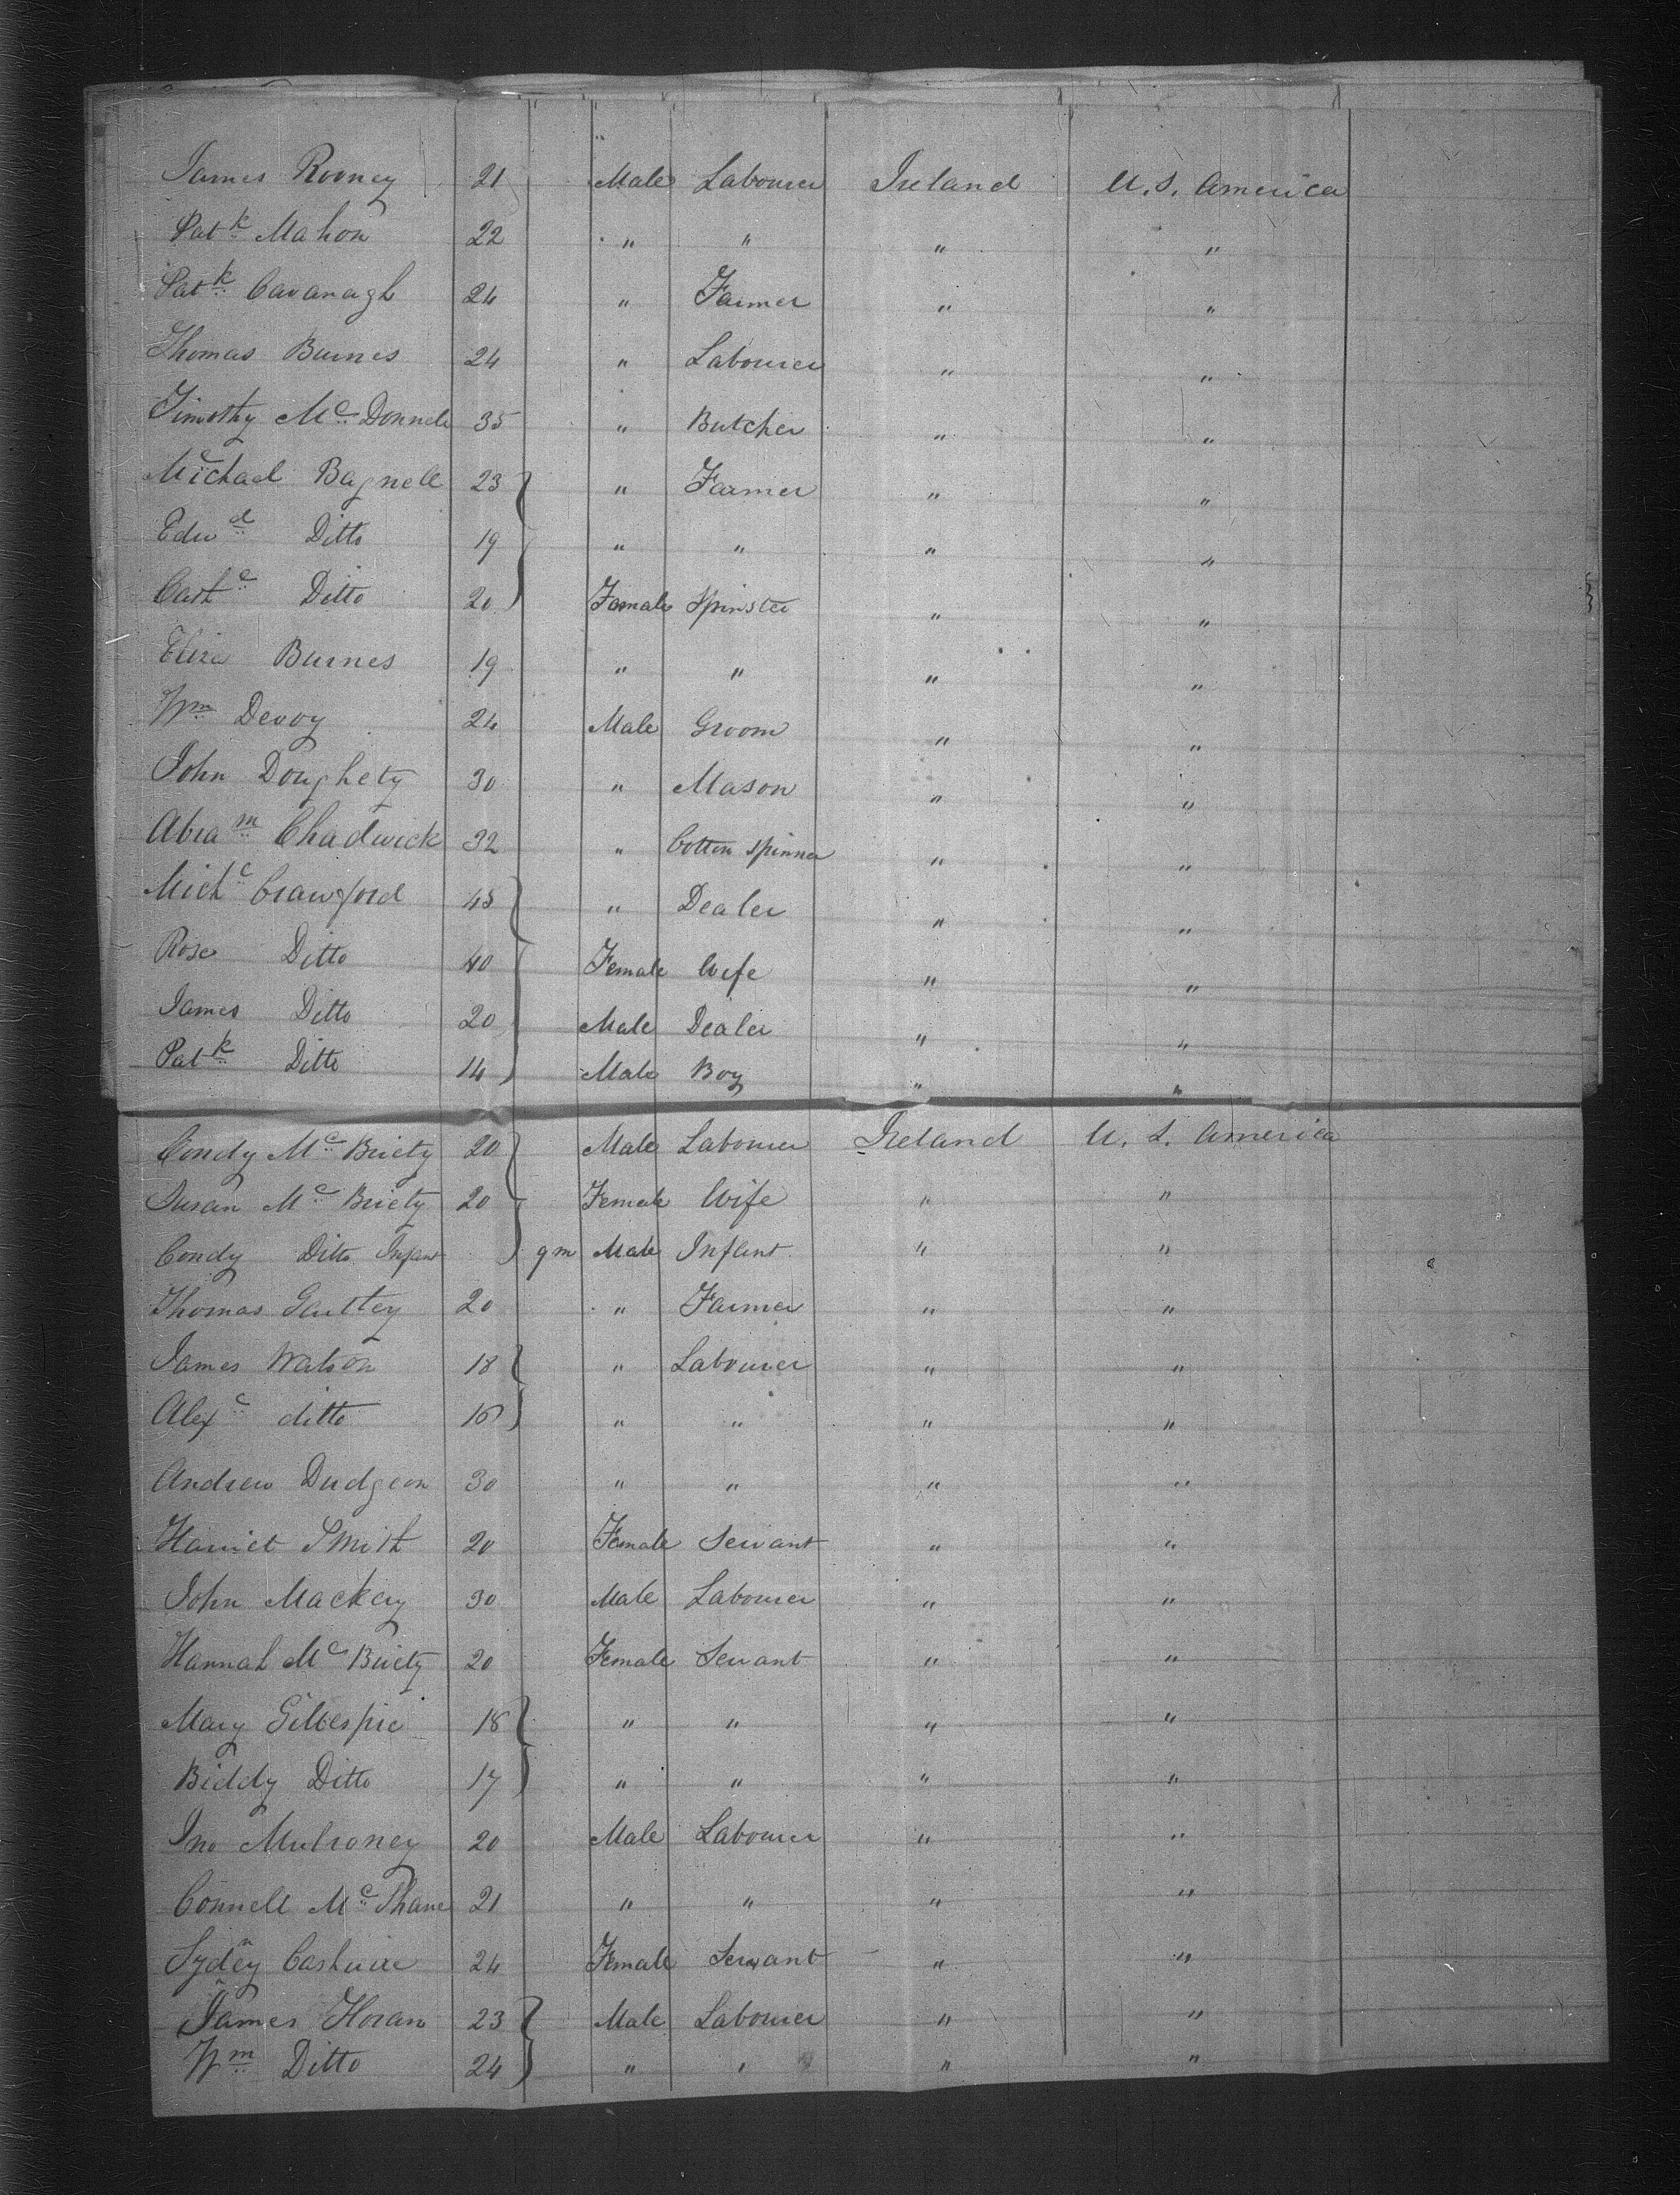 James Rooney 21 Male Labourer Ireland U.S. America
Patk Mahon 22 " " " "
Patk Cavanagh 24 " Farmer " "
Thomas Burnes 24 " Labourer " "
Timothy Mc Donnell 35 " Butcher " "
Michael Bagnell 23 " Farmer " "
Edwd Ditto 19 " " " "
Cathe Ditto 20 Female Spinster " "
Eliza Burnes 19 " " " "
Wm Devoy 24 Male Groom " "
John Doughety 30 " Mason " "
Abram Chadwick 32 " Cotton spinner " "
Michl Crawford 45 " Dealer " "
Rose Ditto 40 Female Wife " "
James Ditto 20 Male Dealer " "
Patk Ditto 14 Male Boy " "
Condy Mc Briety 20 Male Labourer Ireland U. S. America
Susan Mc Briety 20 Female Wife " "
Condy Ditto Infant 9 m Male Infant " "
Thomas 20 " Farmer " "
James Watson 18 " Labourer " "
Alexr ditto 16 " " " "
Andrew Dudgeon 30 " " " "
Harriet Smith 20 Female Servant " "
John Mackey 30 Male Labourer " "
Hannah Mc Briety 20 Female Servant " "
Mary Gillespie 18 " " " "
Biddy Ditto 17 " " " "
Jno Mulroney 20 Male Labourer " "
Connell Mc Shane 21 " " " "
Sydney 24 Female Servant " "
James Horan 23 Male Labourer " "
Wm Ditto 24 " " " "